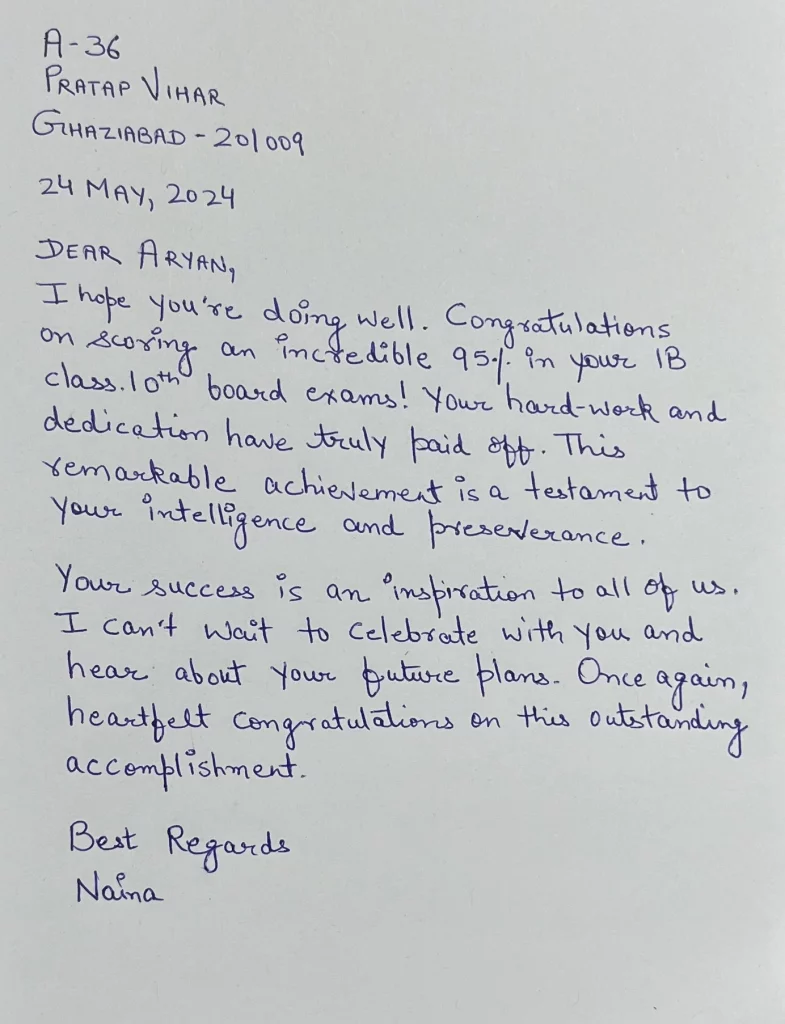 A-36
PRATAP VIHAR
GHAZIABAD - 201009
24 MAY, 2024
DEAR ARYAN,
I hope you're doing well. Congratulations
on scoring an incredible 95% in your IB
class.10th board exams! Your hard-work and
dedication have truly paid off. This
remarkable achievement is a testament to
your intelligence and preserverance.
Your success is an inspiration to all of us.
I can't wait to celebrate with you and
hear about your future plans. Once again,
heartfelt congratulations on this outstanding
accomplishment.
Best Regards
Naina